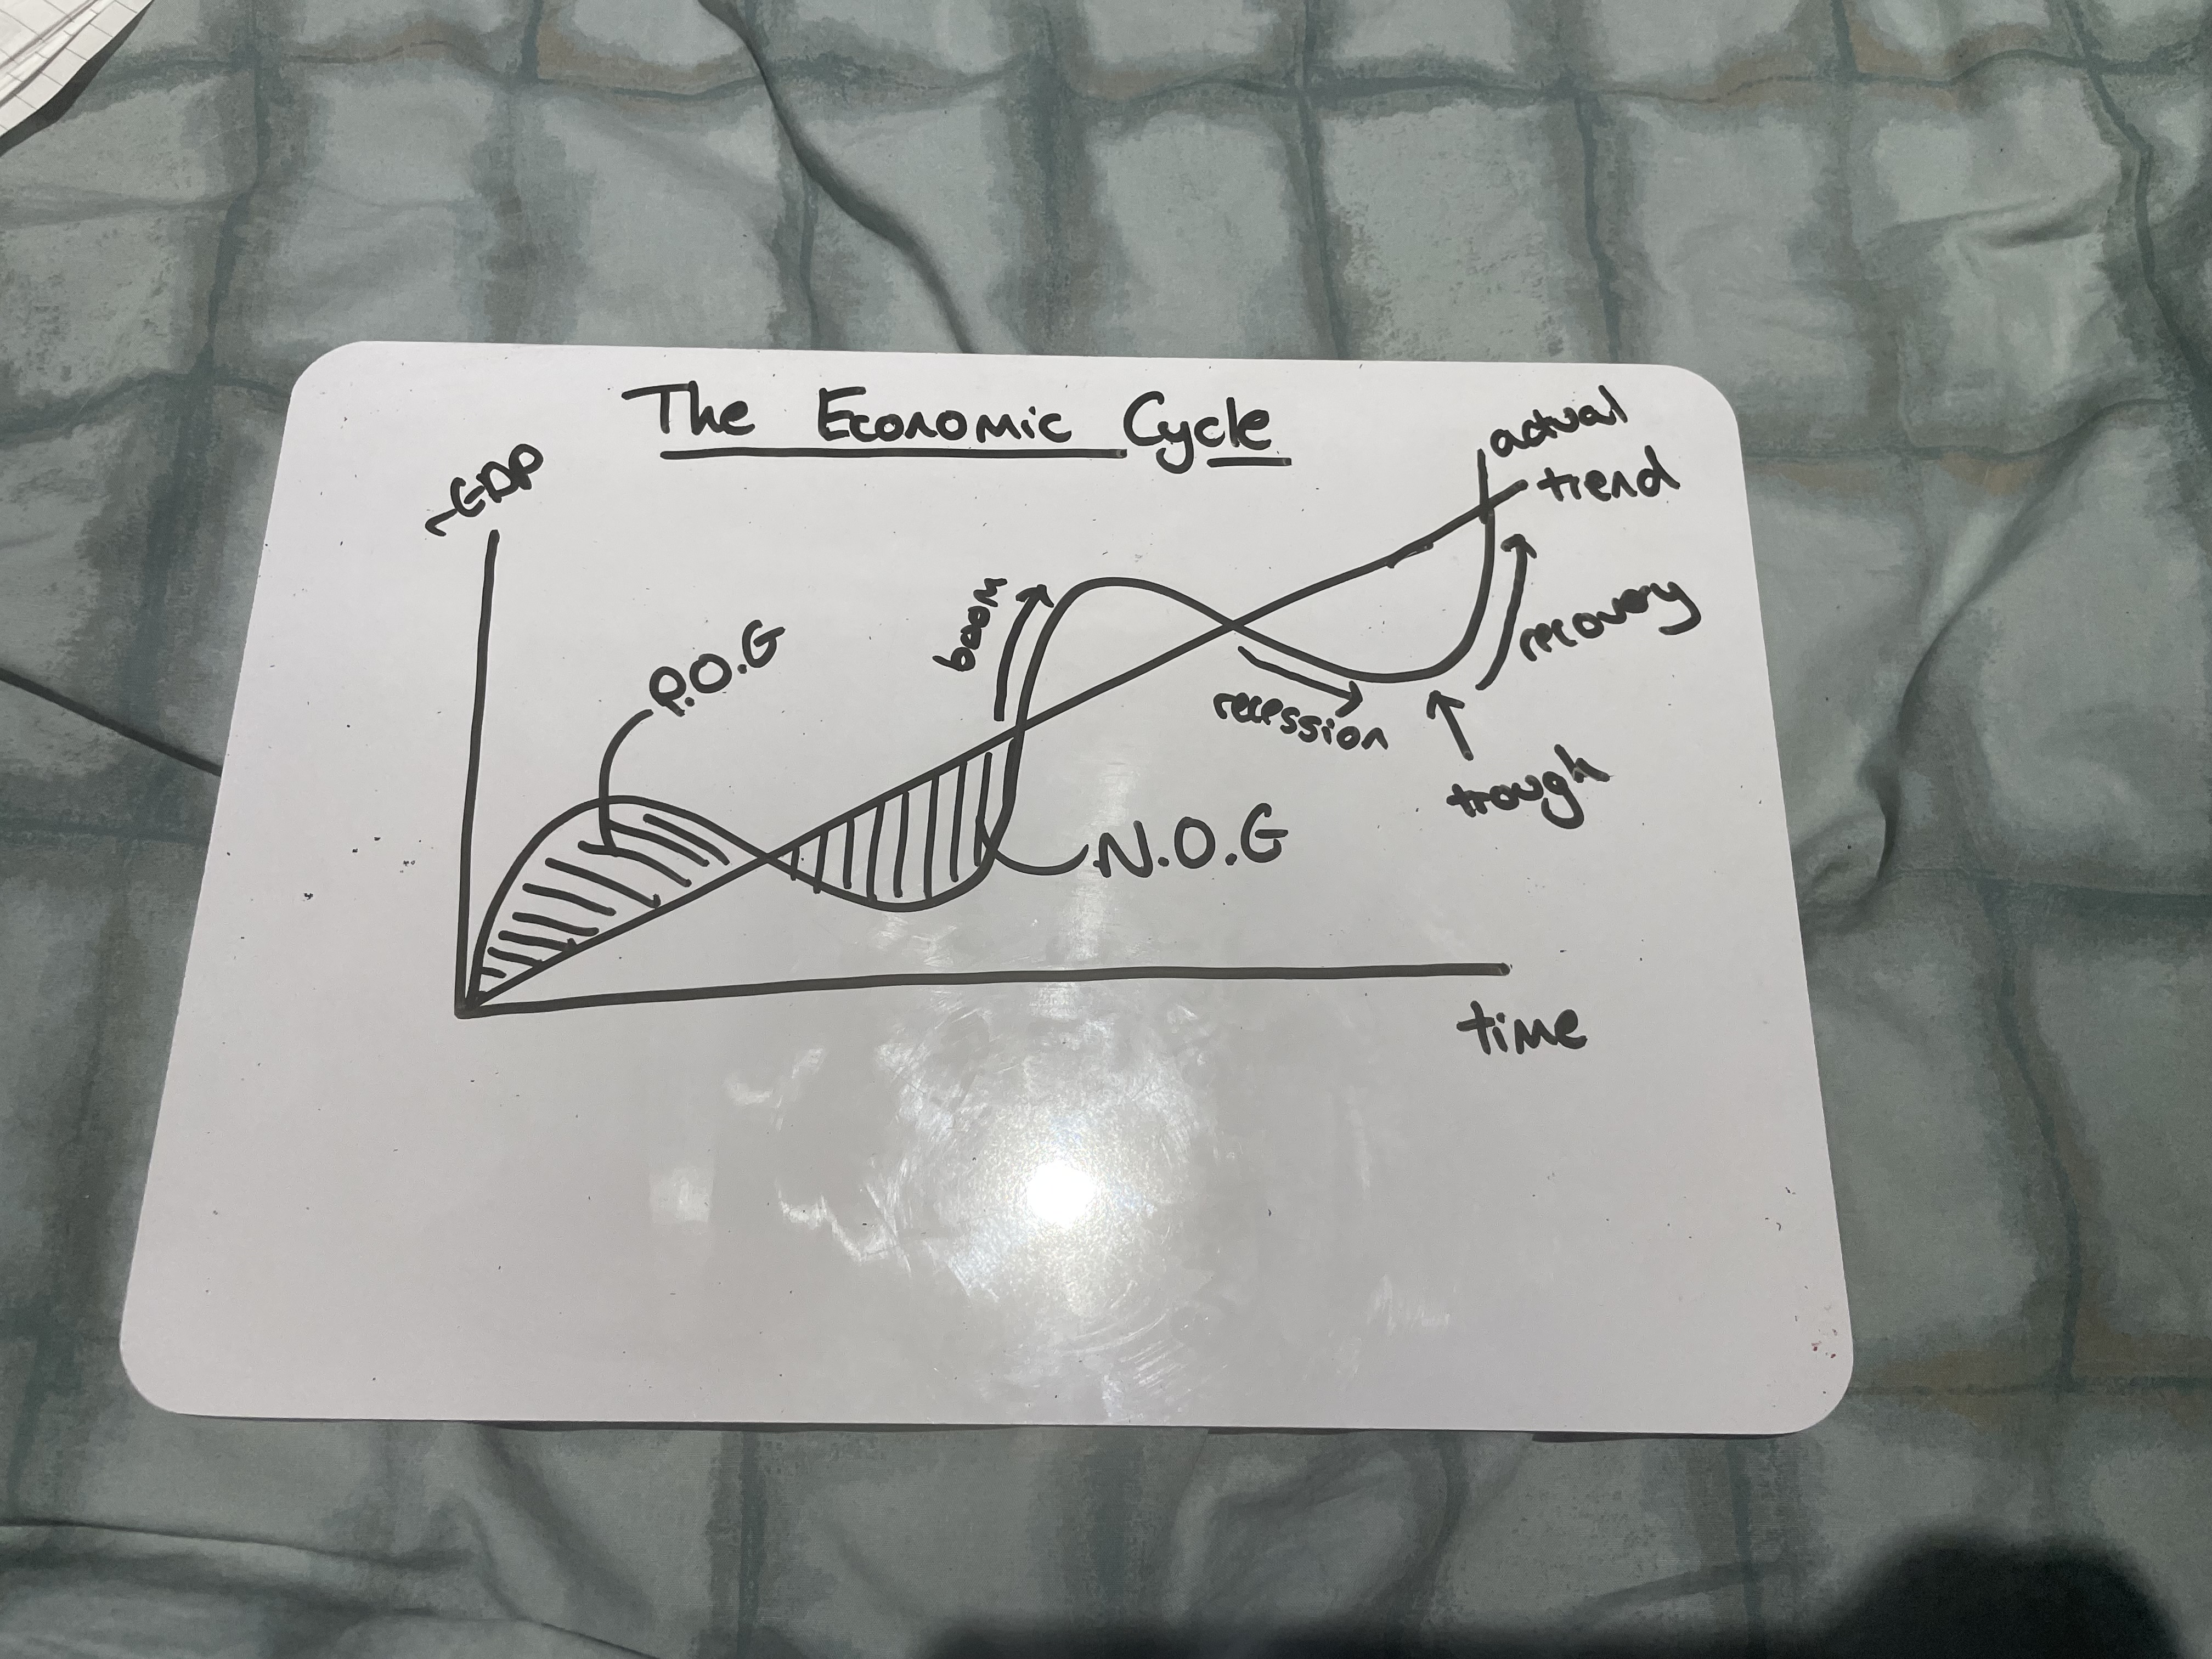 The Economic Cycle
rGDP
actual
trend
P.O.G
boom
recession
recovery
trough
N.O.G
time